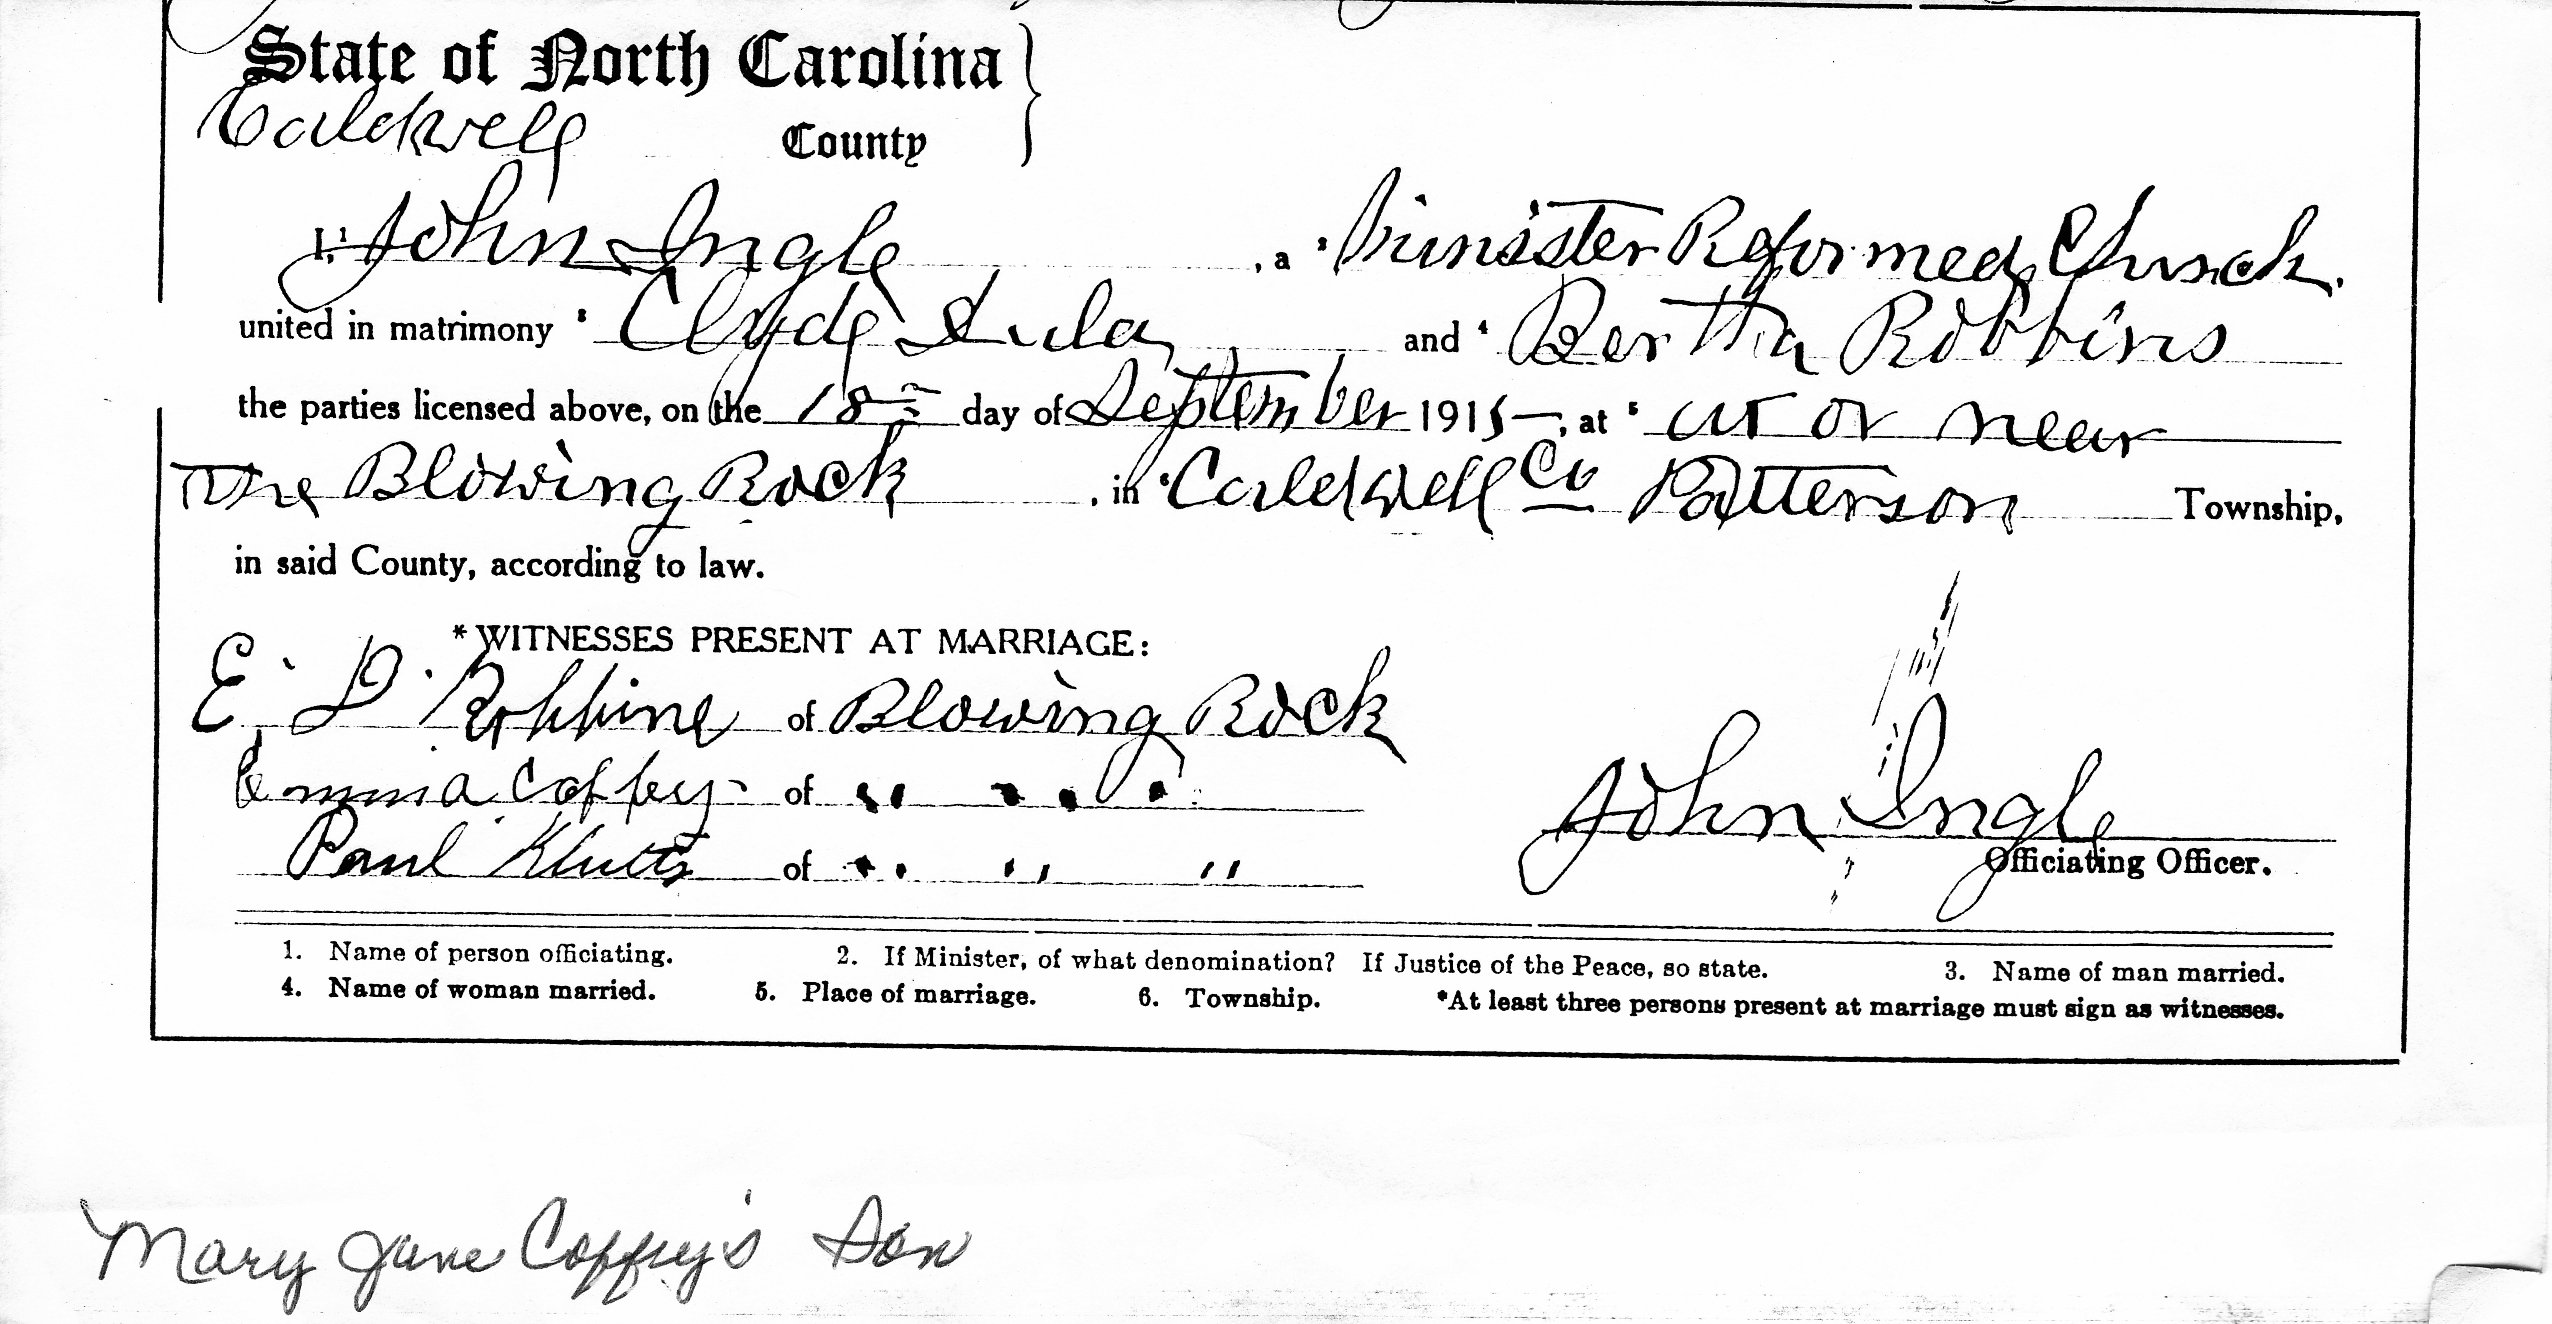 State of North Carolina
Caldwell County
I, John Ingle, a Minister Reformed Church.
united in matrimony 3 Clyde and 4 Bertha Robbins
the parties licensed above, on the 18 day of September 1915, at 5 at or near
The Blowing Rock, in 6 Caldwell Co Patterson Township,
in said County, according to law.
*WITNESSES PRESENT AT MARRIAGE:
E. D. Robbins of Blowing Rock
Emma Coffey of " " "
Paul Kluttz of " " "
John Ingle
Officiating Officer.
1. Name of person officiating. 2. If Minister, of what denomination? If Justice of the Peace, so state. 3. Name of man married.
4. Name of woman married. 5. Place of marriage. 6. Township. *At least three persons present at marriage must sign as witnesses.
Mary Jane Coffey's Son